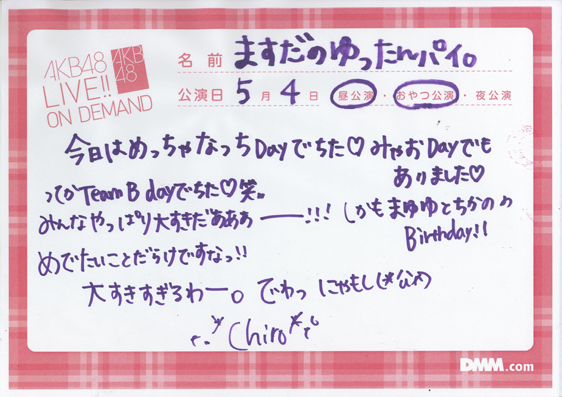 AKB48
LIVE!!
ON DEMAND
AKB
48
名前 ますだのゆったんパイ。
公演日 5月4日 昼公演・おやつ公演・夜公演
今日はめっちゃなっちDayでちた♡ みゃおDayでも
ありました♡
ってかTeam B dayでちた♡笑。
みんなやっぱり大すきだぁぁぁー!!!
しかもまゆゆとちかりの
Birthday!!
めでたいことだらけですなっ!!
大すきすぎるわー。でわっ にゃもし
Chiro
DMM.com